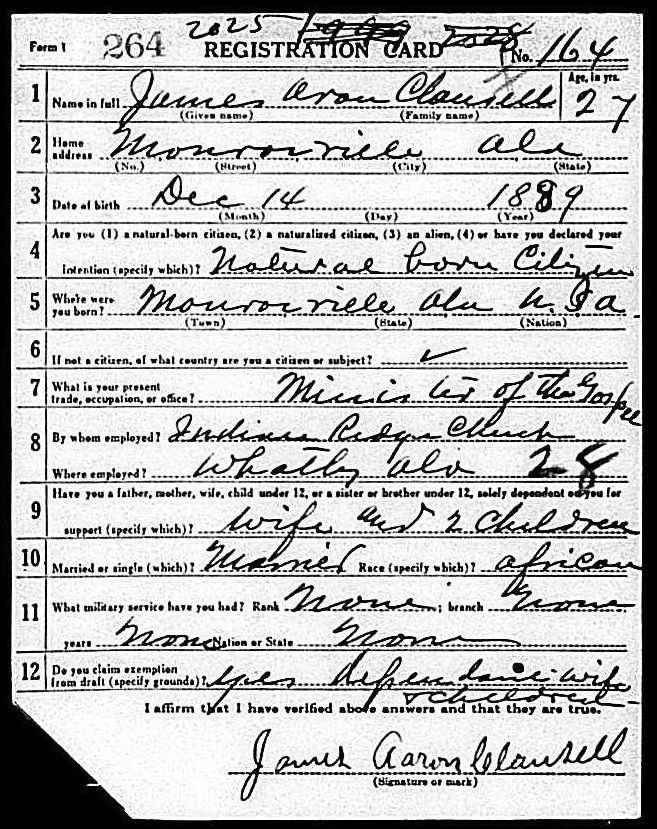 2025
Form 1 264 REGISTRATION CARD No. 164
1 Name in full James Aron Clausell Age, in yrs. 27
(Given name) (Family name)
2 Home address Monroeville Ala
(No.) (Street) (City) (State)
3 Date of birth Dec 14 1889
(Month) (Day) (Year)
Are you (1) a natural-born citizen, (2) a naturalized citizen, (3) an alien, (4) or have you declared your
4 intention (specify which)? Natural born Citizen
5 Where were you born? Monroeville Ala U.S.a.
(Town) (State) (Nation)
6 If not a citizen, of what country are you a citizen or subject? ✓
7 What is your present trade, occupation, or office? Minister of the Gospel
8 By whom employed? Ridge Church
Where employed? Whatley Ala 28
Have you a father, mother, wife, child under 12, or a sister or brother under 12, solely dependent on you for
9 support (specify which)? Wife and 2 Children
10 Married or single (which)? Married Race (specify which)? african
11 What military service have you had? Rank None; branch None
years None Nation or State None
12 Do you claim exemption from draft (specify grounds)? yes wife
& children
I affirm that I have verified above answers and that they are true.
James Aaron Clausell
(Signature or mark)